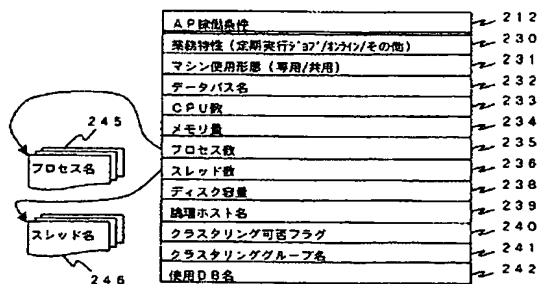 AP稼働条件 212
業務特性(定期実行ジョブ/オンライン/その他) 230
マシン使用形態(専用/共用) 231
データパス名 232
CPU数 233
メモリ量 234
プロセス数 235
スレッド数 236
ディスク容量 238
論理ホスト名 239
クラスタリング可否フラグ 240
クラスタリンググループ名 241
使用DB名 242
245
プロセス名
スレッド名
246